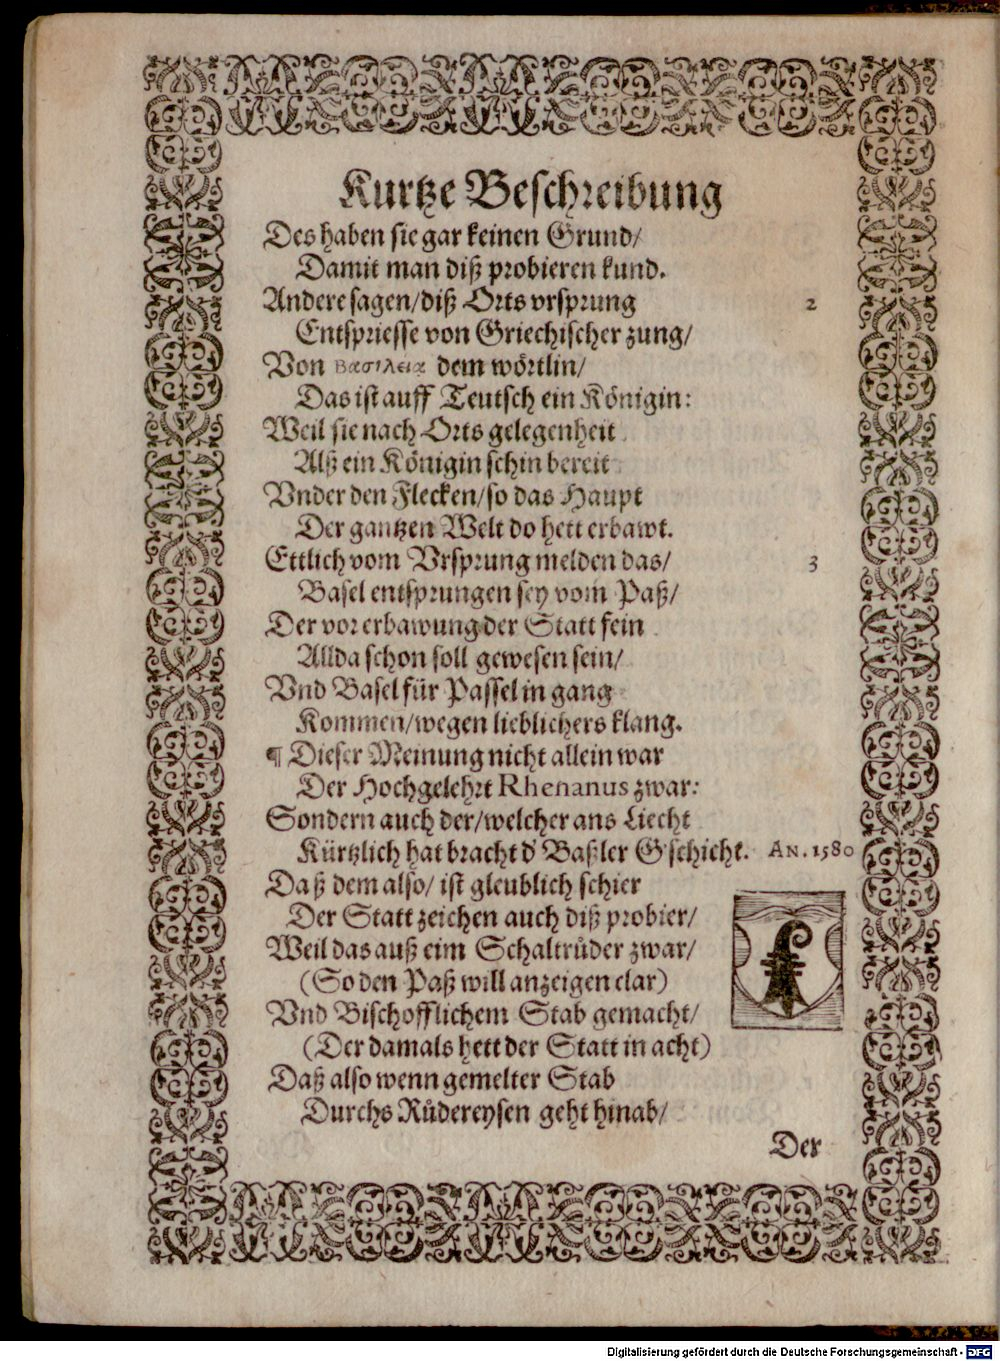 Kurtze Beschreibung
Des haben sie gar keinen Grund/
Damit man diß probieren kund.
Andere sagen/diß Orts vrsprung 2
Entspriesse von Griechischer zung/
Von Βασιλεια dem wörtlin/
Das ist auff Teutsch ein Königin:
Weil sie nach Orts gelegenheit
Alß ein Königin schin bereit
Vnder den Flecken/so das Haupt
Der gantzen Welt do hett erbawt.
Ettlich vom Vrsprung melden das/ 3
Basel entsprungen sey vom Paß/
Der vor erbawung der Statt fein
Allda schon soll gewesen sein/
Vnd Basel für Passel in gang
Kommen/wegen lieblichers klang.
¶ Dieser Meinung nicht allein war
Der Hochgelehrt Rhenanus zwar:
Sondern auch der/welcher ans Liecht
Kürtzlich hat bracht d' Baßler G'schicht. AN. 1580
Daß dem also/ ist gleublich schier
Der Statt zeichen auch diß probier/
Weil das auß eim Schaltrůder zwar/
(So den Paß will anzeigen clar)
Vnd Bischofflichem Stab gemacht/
(Der damals hett der Statt in acht)
Daß also wenn gemelter Stab
Durchs Růdereysen geht hinab/
Der
Digitalisierung gefördert durch die Deutsche Forschungsgemeinschaft - DFG